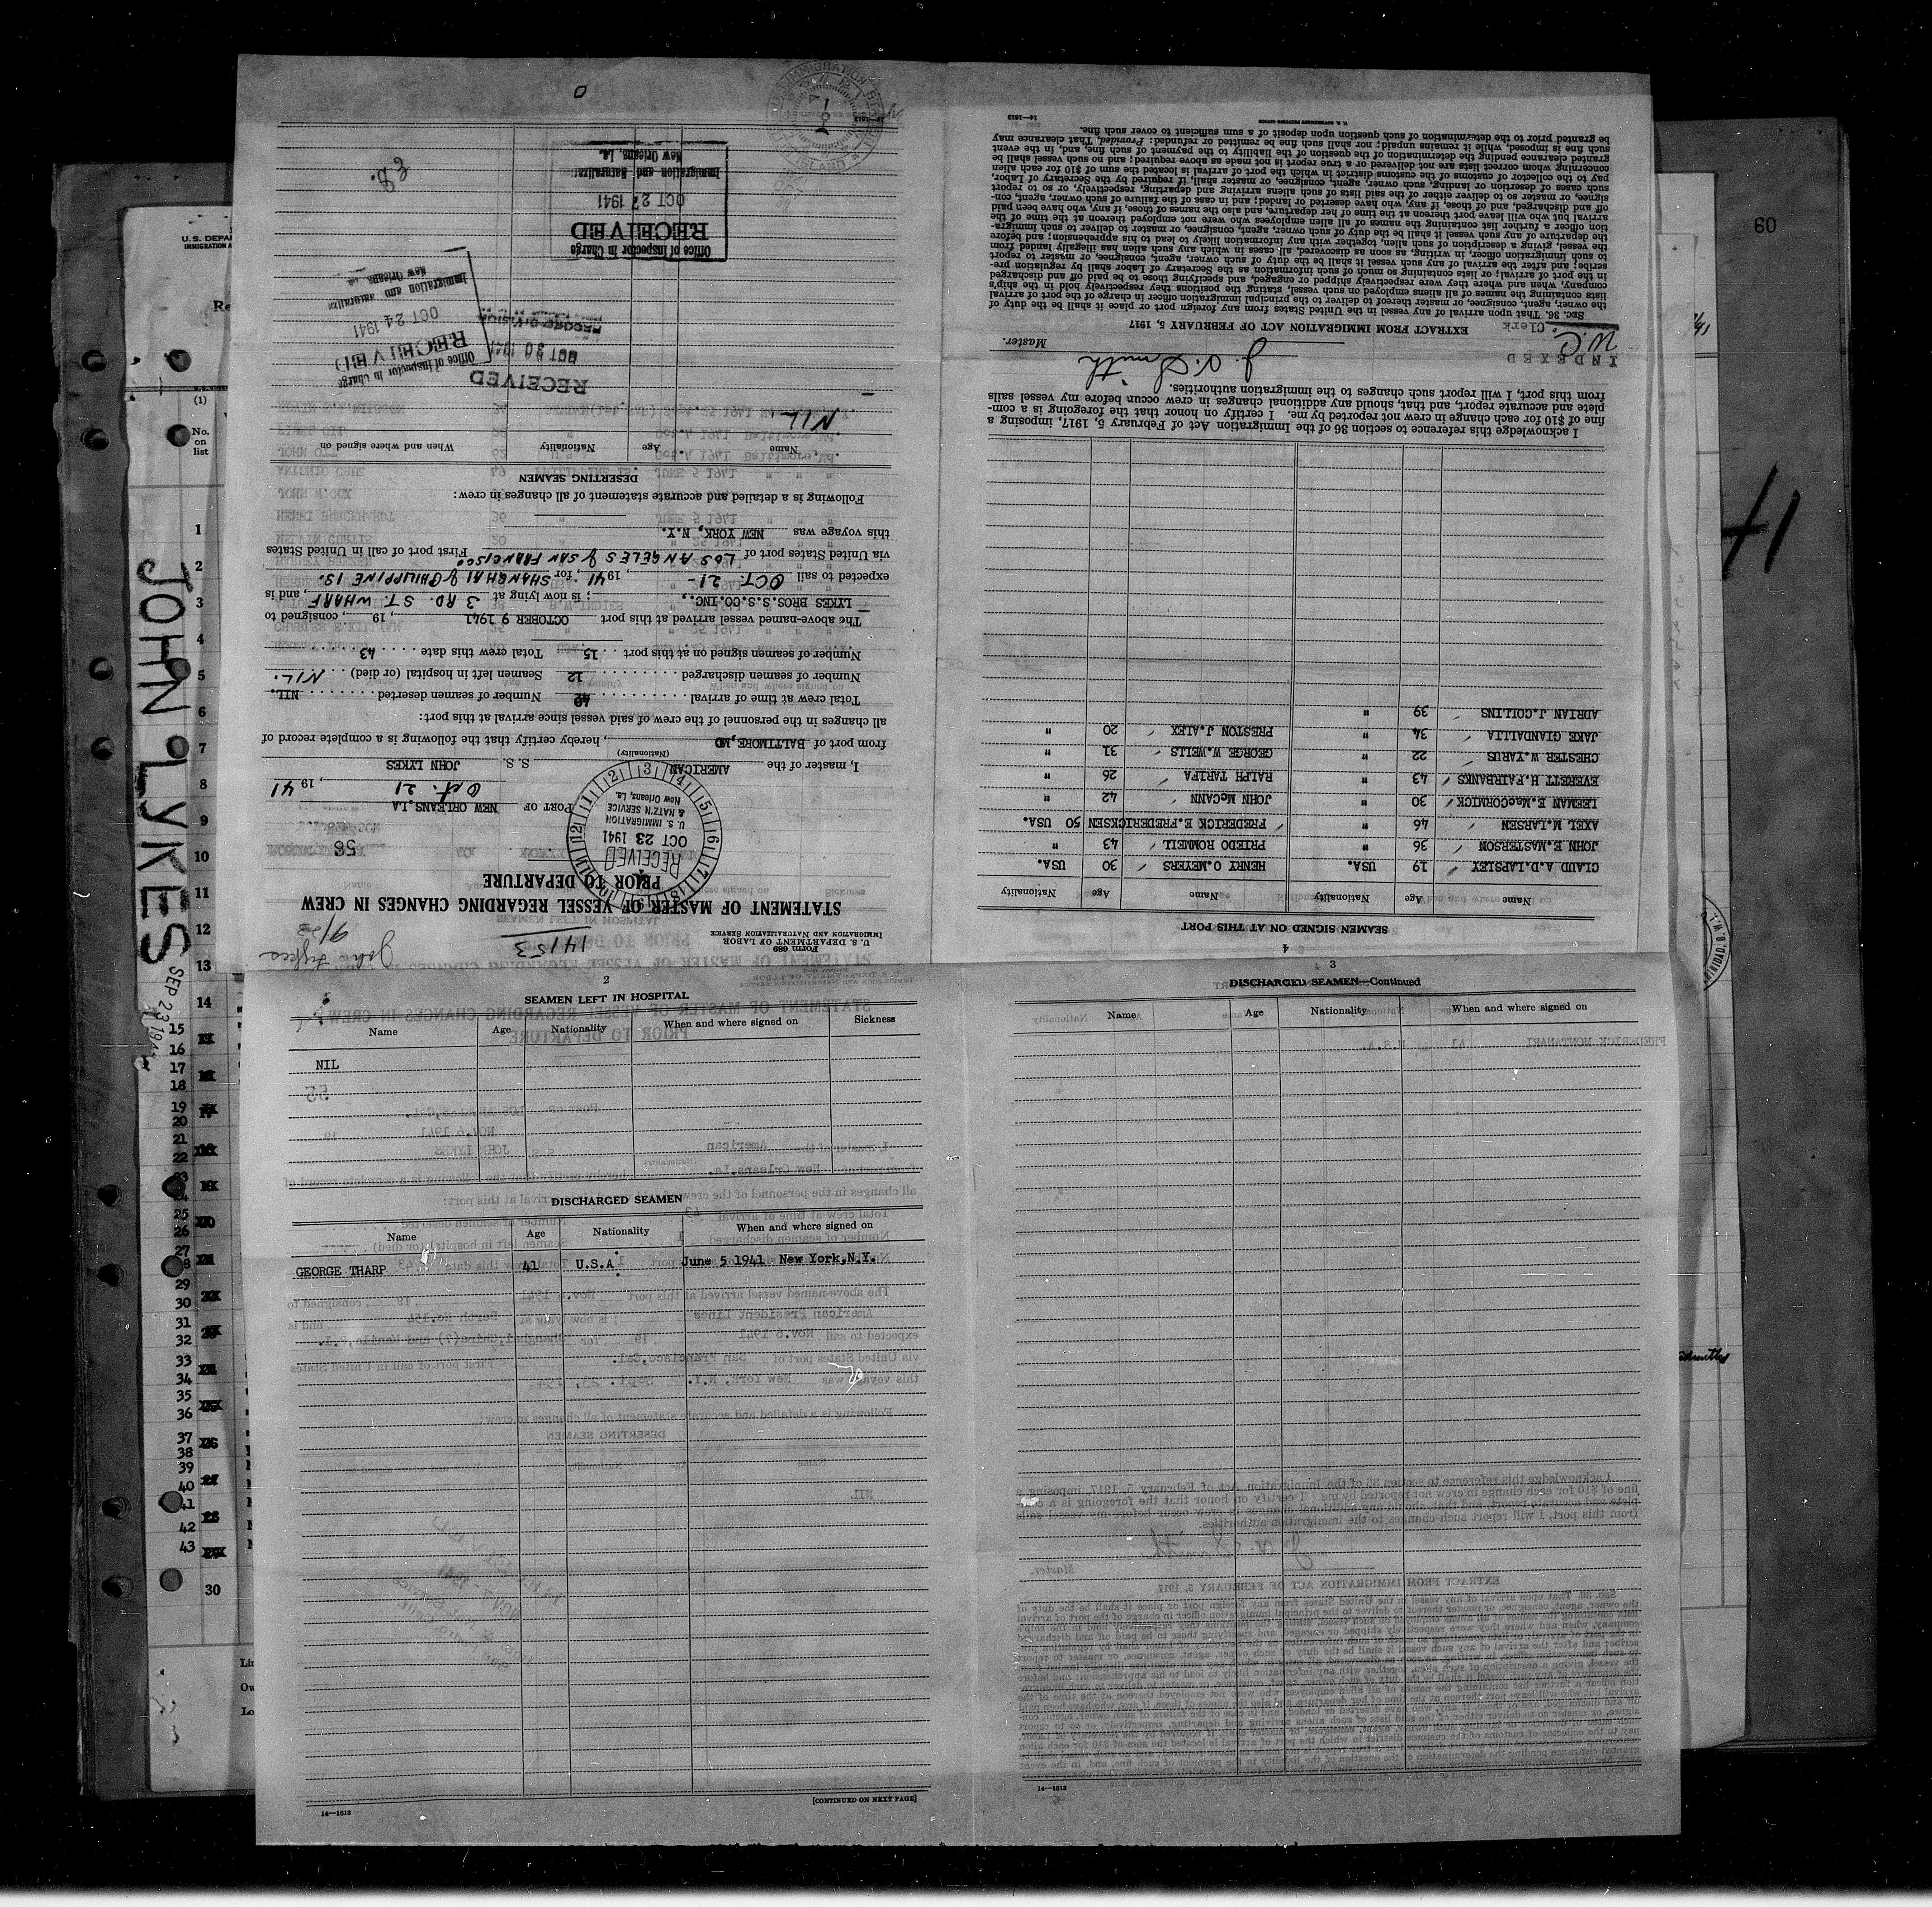 JOHN LYKES
SEP 23 1941
60
U.S. DEPA
IMMIGRATION A
Re
(1)
No.
on
list
1
2
3
4
5
6
7
8
9
10
11
12
13
14
15
16
17
18
19
20
21
22
25
26
27
29
30
31
32
33
34
35
36
37
38
39
40
41
42
43
30
Form 689
U. S. DEPARTMENT OF LABOR
IMMIGRATION AND NATURALIZATION SERVICE
14153
John Lykes
9/23
STATEMENT OF MASTER OF VESSEL REGARDING CHANGES IN CREW
PRIOR TO DEPARTURE
RECEIVED
OCT 23 1941
U. S. IMMIGRATION
& NATZ'N SERVICE
New Orleans, La.
58
PORT OF NEW ORLEANS, LA.
Oct. 21, 1941
I, master of the AMERICAN S. S. JOHN LYKES
(Nationality)
from port of BALTIMORE, MD, hereby certify that the following is a complete record of
all changes in the personnel of the crew of said vessel since arrival at this port:
Total crew at time of arrival 40 Number of seamen deserted NIL.
Number of seamen discharged 12 Seamen left in hospital (or died) NIL.
Number of seamen signed on at this port 15 Total crew this date 43
The above-named vessel arrived at this port OCTOBER 9 1941, 19, consigned to
LYKES BROS.S.S.CO.INC., ; is now lying at 3 RD. ST. WHARF, and is
expected to sail OCT. 21-, 1941, for SHANGHAI & PHILIPPINE IS.
via United States port of LOS ANGELES & SAN FRANCISCO. First port of call in United States
this voyage was NEW YORK, N.Y.
Following is a detailed and accurate statement of all changes in crew:
DESERTING SEAMEN
Name Age Nationality When and where signed on
NIL
RECEIVED
OCT 30 1941
RECORD DIVISION
Office of Inspector in Charge
RECEIVED
OCT 24 1941
Immigration and Naturaliza
New Orleans, La.
Office of Inspector in Charge
RECEIVED
OCT 27 1941
Immigration and Naturaliza
New Orleans, La.
14—1613
4
SEAMEN SIGNED ON AT THIS PORT
Name Age Nationality Name Age Nationality
CLAUD A.D.LAPSLEY 19 USA. HENRY O.MEYERS 30 USA.
JOHN E.MASTERSON 36 " PRIEDO ROMMELL 43 "
AXEL M.LARSEN 46 " FREDERICK E.FREDERICKSEN 50 USA.
LEEMAN E.MacCORMICK 30 " JOHN McCANN 42 "
EVERETT H.FAIRBANKS 43 " RALPH TARIFA 26 "
CHESTER W.YARUS 22 " GEORGE W.WELLS 31 "
JAKE GIANDALLIA 34 " PRESTON J.ALEX 20 "
ADRIAN J.COLLINS 39 "
I acknowledge this reference to section 36 of the Immigration Act of February 5, 1917, imposing a
fine of $10 for each change in crew not reported by me. I certify on honor that the foregoing is a com-
plete and accurate report, and that, should any additional changes in crew occur before my vessel sails
from this port, I will report such changes to the immigration authorities.
INDEXED
W.C. Clerk
J. V. Smith
Master.
EXTRACT FROM IMMIGRATION ACT OF FEBRUARY 5, 1917
SEC. 36. That upon arrival of any vessel in the United States from any foreign port or place it shall be the duty of
the owner, agent, consignee, or master thereof to deliver to the principal immigration officer in charge of the port of arrival
lists containing the names of all aliens employed on such vessel, stating the positions they respectively hold in the ship's
company, when and where they were respectively shipped or engaged, and specifying those to be paid off and discharged
in the port of arrival; or lists containing so much of such information as the Secretary of Labor shall by regulation pre-
scribe; and after the arrival of any such vessel it shall be the duty of such owner, agent, consignee, or master to report
to such immigration officer, in writing, as soon as discovered, all cases in which any such alien has illegally landed from
the vessel, giving a description of such alien, together with any information likely to lead to his apprehension; and before
the departure of any such vessel it shall be the duty of such owner, agent, consignee, or master to deliver to such immigra-
tion officer a further list containing the names of all alien employees who were not employed thereon at the time of the
arrival but who will leave port thereon at the time of her departure, and also the names of those, if any, who have been paid
off and discharged, and of those, if any, who have deserted or landed; and in case of the failure of such owner, agent, con-
signee, or master so to deliver either of the said lists of such aliens arriving and departing, respectively, or so to report
such cases of desertion or landing, such owner, agent, consignee, or master shall, if required by the Secretary of Labor,
pay to the collector of customs of the customs district in which the port of arrival is located the sum of $10 for each alien
concerning whom correct lists are not delivered or a true report is not made as above required; and no such vessel shall be
granted clearance pending the determination of the question of the liability to the payment of such fine, and, in the event
such fine is imposed, while it remains unpaid; nor shall such fine be remitted or refunded: Provided, That clearance may
be granted prior to the determination of such question upon deposit of a sum sufficient to cover such fine.
U. S. GOVERNMENT PRINTING OFFICE 14—1613
2
SEAMEN LEFT IN HOSPITAL
Name Age Nationality When and where signed on Sickness
NIL
DISCHARGED SEAMEN
Name Age Nationality When and where signed on
GEORGE THARP 41 U.S.A. June 5 1941 New York, N.Y.
[CONTINUED ON NEXT PAGE]
14—1613
3
DISCHARGED SEAMEN—Continued
Name Age Nationality When and where signed on
14—1613